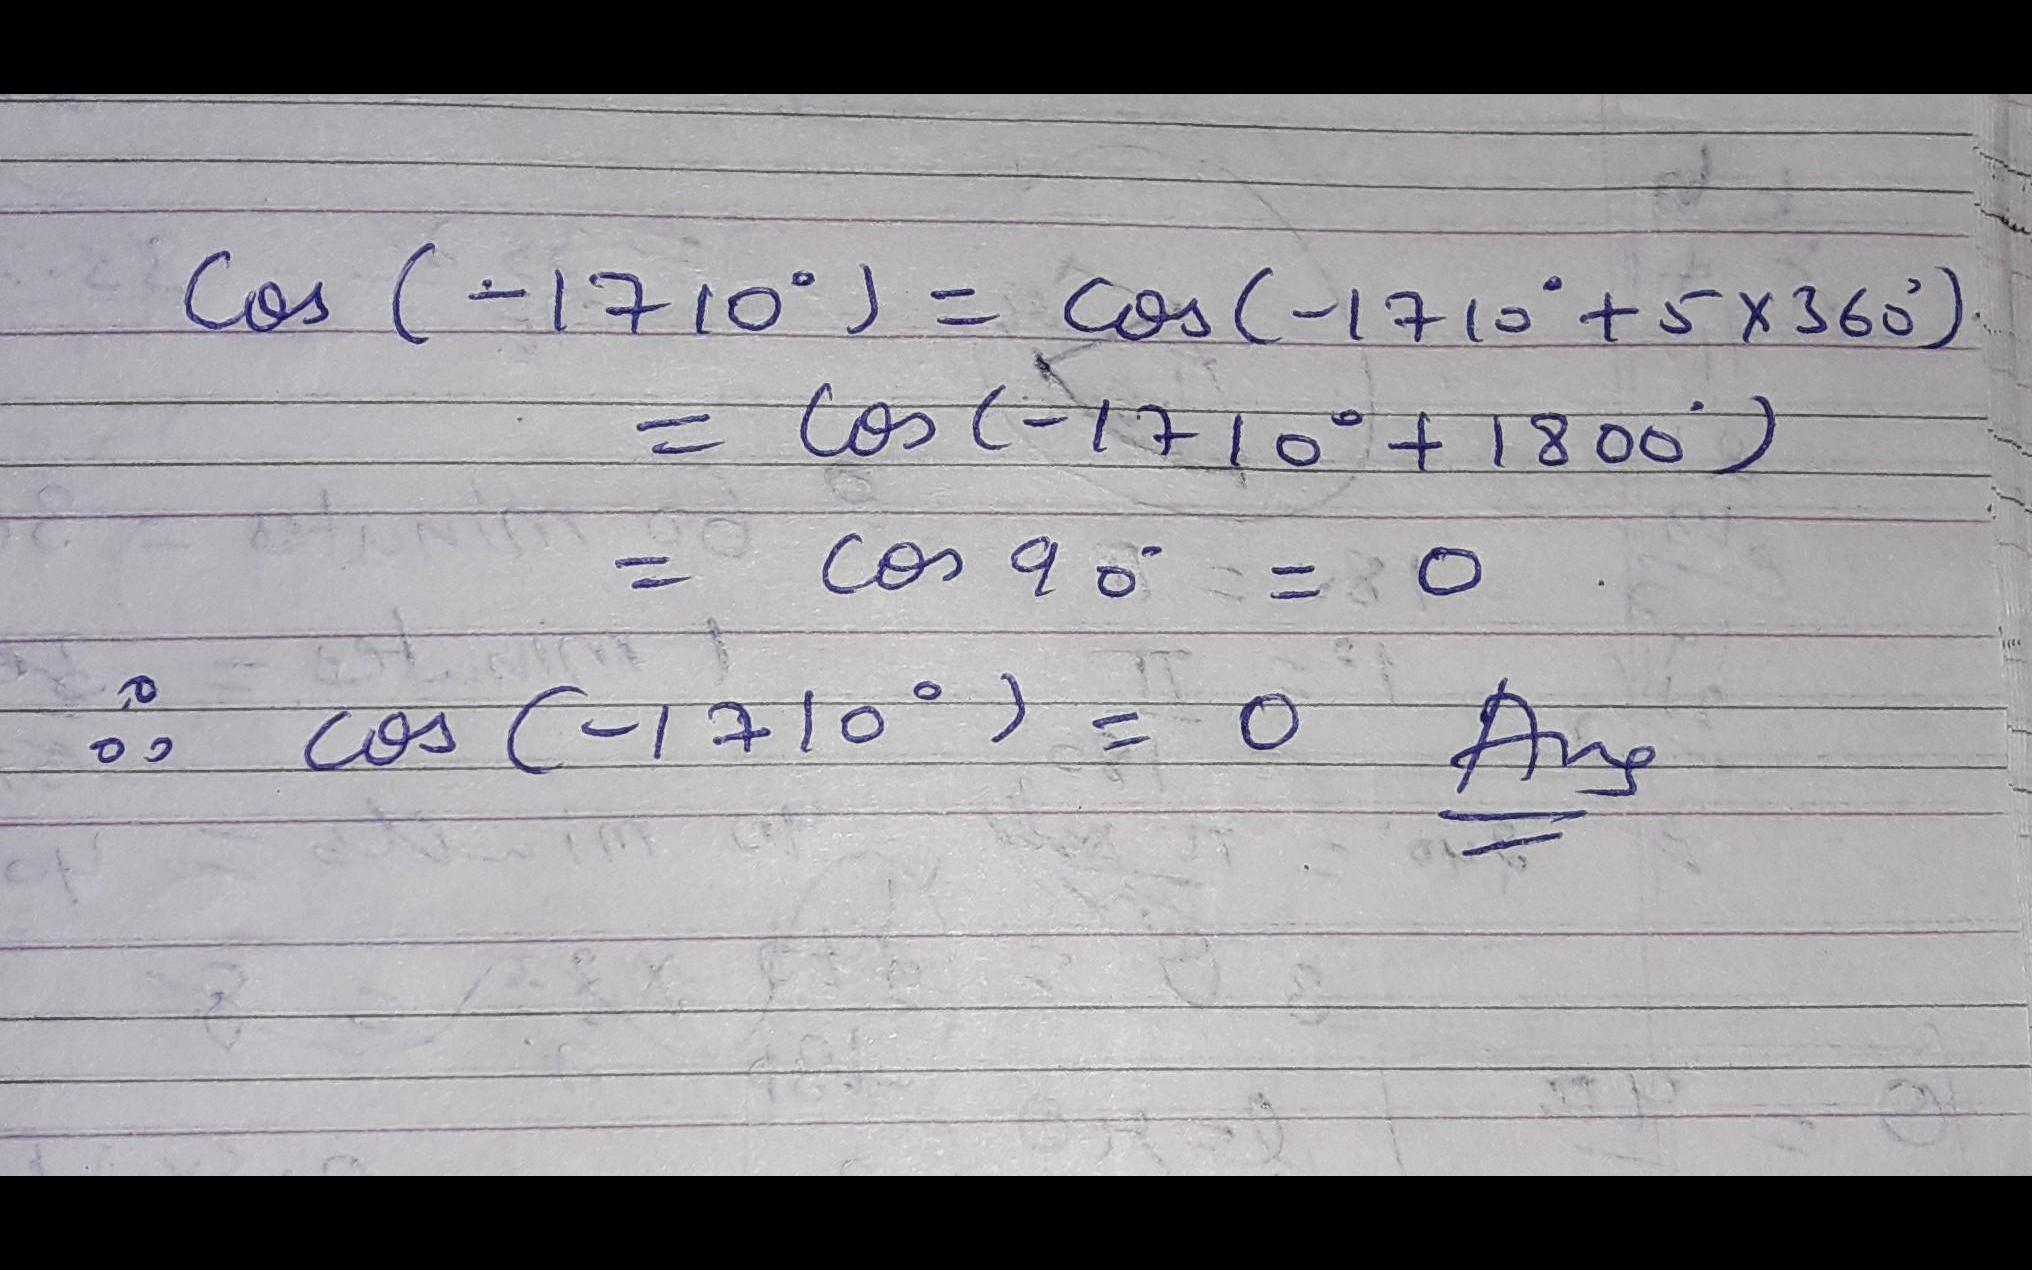 Cos (-1710°) = cos(-1710°+5×360°).
= Cos (-1710°+1800°)
= cos 90° = 0
∴ cos (-1710°) = 0 Ans